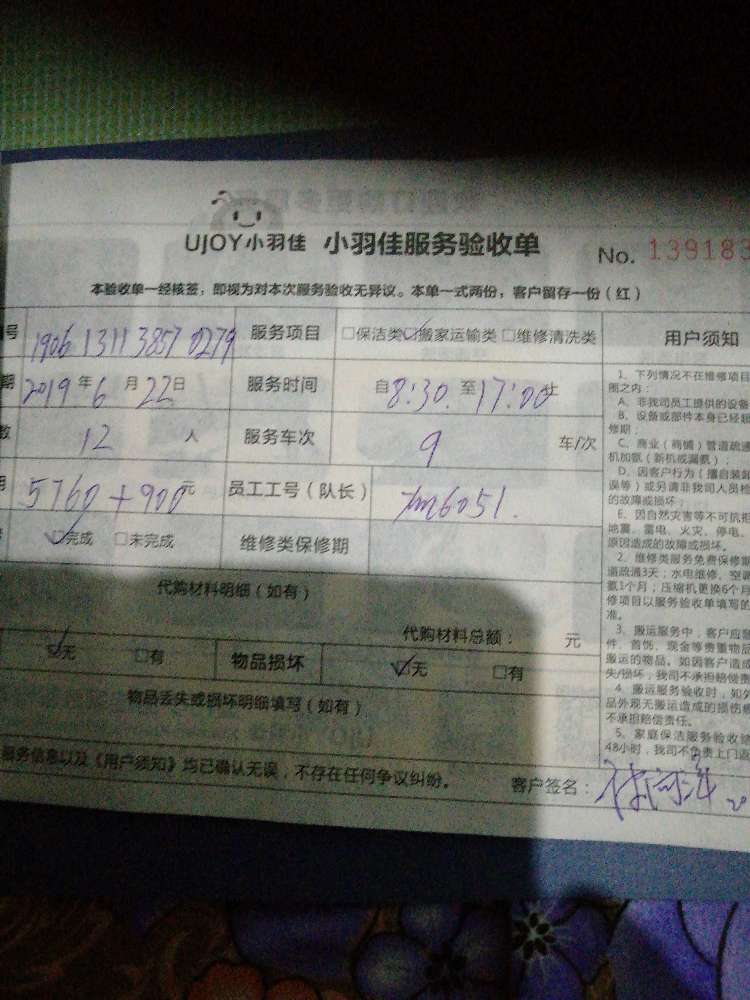 UJOY小羽佳 小羽佳服务验收单 No. 139183
本验收单一经核签，即视为对本次服务验收无异议。本单一式两份，客户留存一份（红）
号 1906131138570279 服务项目 □保洁类☑搬家运输类 □维修清洗类 用户须知
期 2019年6月22日 服务时间 自8:30至17:00止
数 12人 服务车次 9 车/次
用 5760+900元 员工工号（队长） xm6051.
☑完成 □未完成 维修类保修期
代购材料明细（如有）
代购材料总额： 元
☑无 □有 物品损坏 ☑无 □有
物品丢失或损坏明细填写（如有）
服务信息以及《用户须知》均已确认无误，不存在任何争议纠纷。 客户签名：
1、下列情况不在维修项目
围之内：
A、非我司员工提供的设备
B、设备或部件本身已经超
修期；
C、商业（商铺）管道疏通
机加氨（新机或漏氨）；
D、因客户行为（擅自装卸
误等）或另请非我司人员检
的故障或损坏；
E、因自然灾害等不可抗拒
地震、雷电、火灾、停电、
原因造成的故障或损坏。
2、维修类服务免费保修期
道疏通3天；水电维修、空调
氨1个月；压缩机更换6个月
修项目以服务验收单填写的
准。
3、搬运服务中，客户应
件、首饰、现金等贵重物品
搬运的物品。如因客户造成
失/损坏，我司不承担赔偿责
4、搬运服务验收时，如
品外观无搬运造成的损伤
不承担赔偿责任。
5、家庭保洁服务验收
48小时，我司不负责上门返